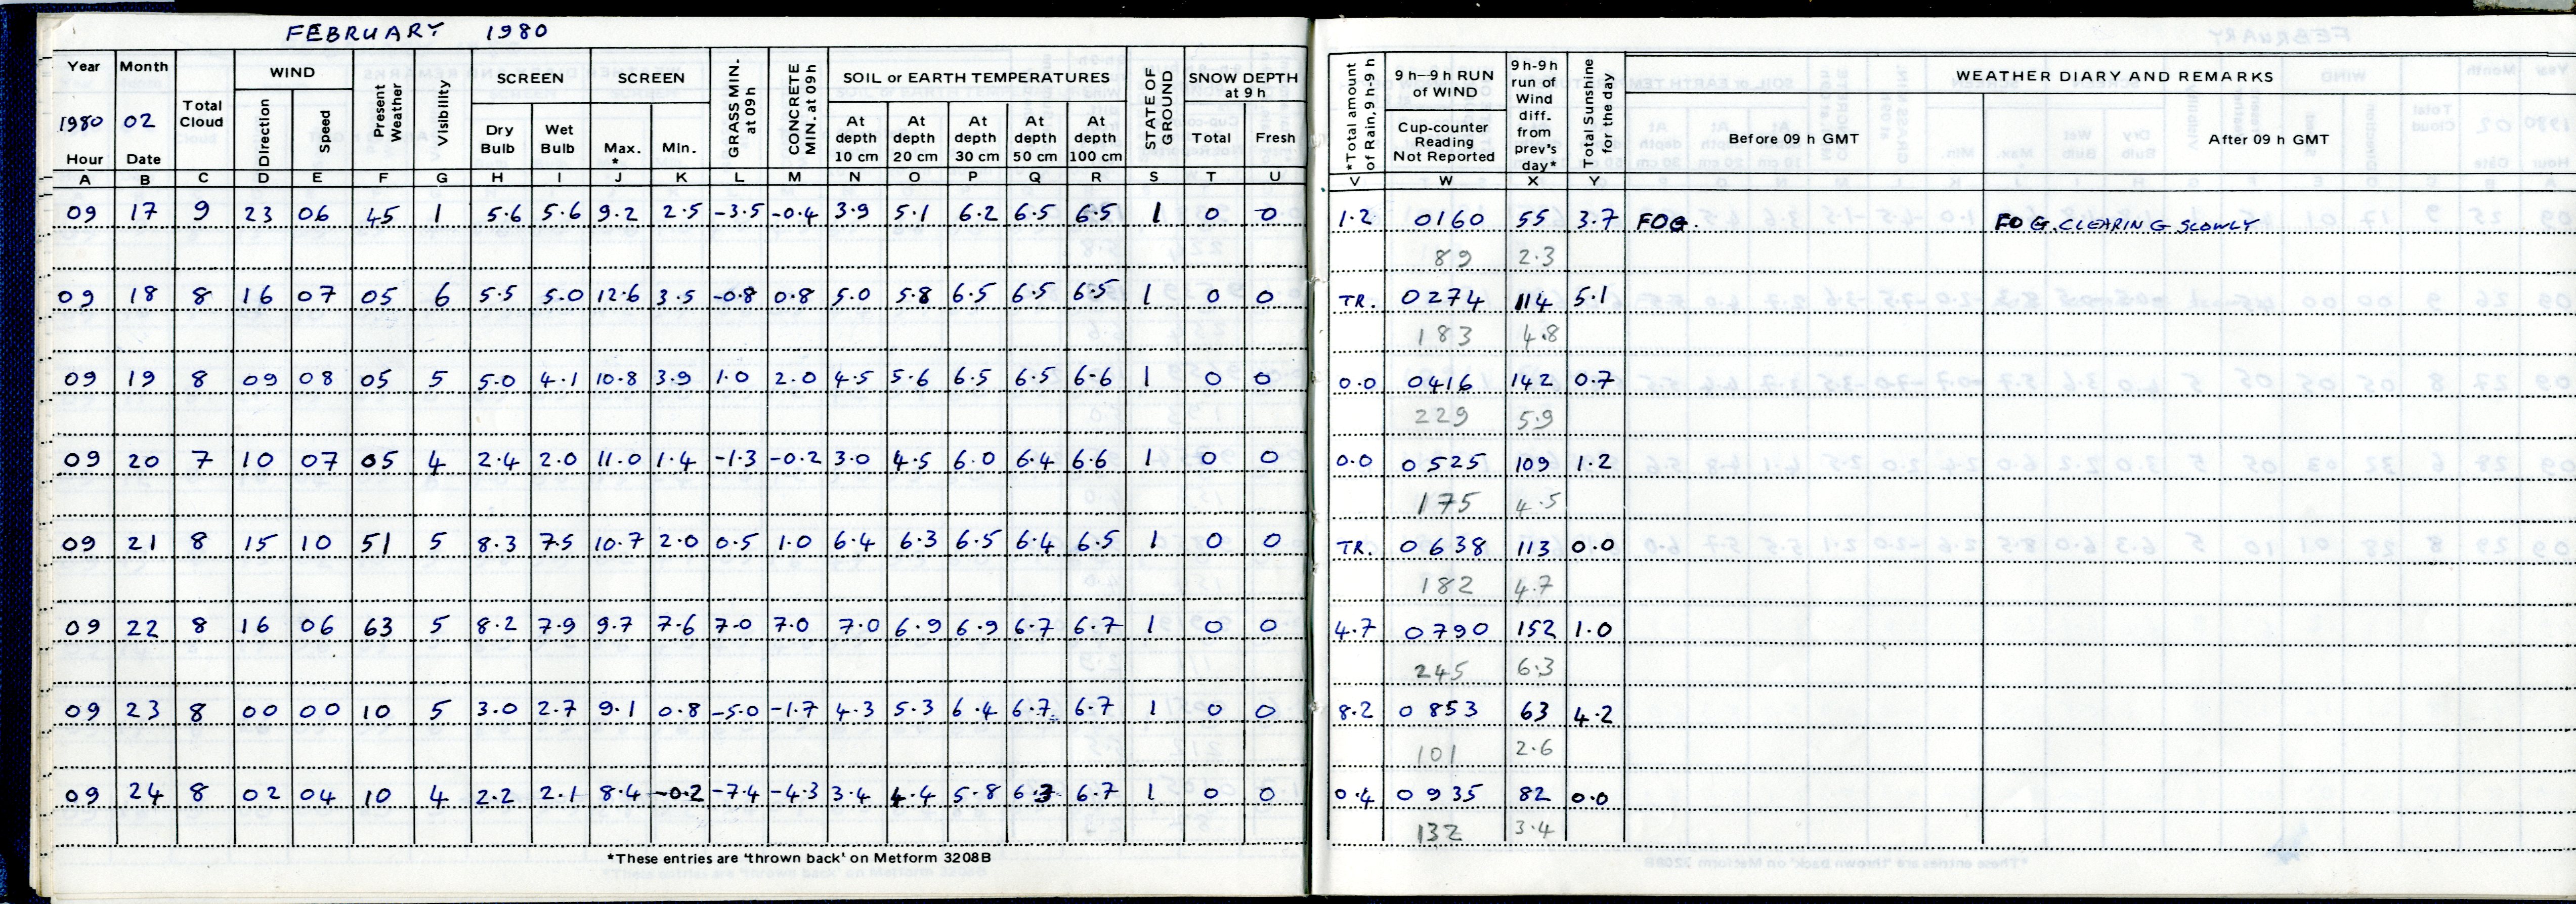 FEBRUARY 1980
Year Month Total Cloud WIND Present Weather Visibility SCREEN SCREEN GRASS MIN. at 09h CONCRETE MIN. at 09h SOIL or EARTH TEMPERATURES STATE OF GROUND SNOW DEPTH at 9 h *Total amount of Rain, 9 h-9 h 9 h–9 h RUN of WIND 9h-9h run of Wind diff. from prev's day* Total Sunshine for the day WEATHER DIARY AND REMARKS
1980 02 Direction Speed Dry Bulb Wet Bulb Max. * Min. At depth 10 cm At depth 20 cm At depth 30 cm At depth 50 cm At depth 100 cm Total Fresh Cup-counter Reading Not Reported Before 09 h GMT After 09 h GMT
Hour Date
A B C D E F G H I J K L M N O P Q R S T U V W X Y
09 17 9 23 06 45 1 5.6 5.6 9.2 2.5 -3.5 -0.4 3.9 5.1 6.2 6.5 6.5 1 0 0 1.2 0160 55 3.7 FOG. FOG. CLEARING SLOWLY
89 2.3
09 18 8 16 07 05 6 5.5 5.0 12.6 3.5 -0.8 0.8 5.0 5.8 6.5 6.5 6.5 1 0 0 TR. 0274 114 5.1
183 4.8
09 19 8 09 08 05 5 5.0 4.1 10.8 3.9 1.0 2.0 4.5 5.6 6.5 6.5 6.6 1 0 0 0.0 0416 142 0.7
229 5.9
09 20 7 10 07 05 4 2.4 2.0 11.0 1.4 -1.3 -0.2 3.0 4.5 6.0 6.4 6.6 1 0 0 0.0 0525 109 1.2
175 4.5
09 21 8 15 10 51 5 8.3 7.5 10.7 2.0 0.5 1.0 6.4 6.3 6.5 6.4 6.5 1 0 0 TR. 0638 113 0.0
182 4.7
09 22 8 16 06 63 5 8.2 7.9 9.7 7.6 7.0 7.0 7.0 6.9 6.9 6.7 6.7 1 0 0 4.7 0790 152 1.0
245 6.3
09 23 8 00 00 10 5 3.0 2.7 9.1 0.8 -5.0 -1.7 4.3 5.3 6.4 6.7 6.7 1 0 0 8.2 0853 63 4.2
101 2.6
09 24 8 02 04 10 4 2.2 2.1 8.4 -0.2 -7.4 -4.3 3.4 4.4 5.8 6.3 6.7 1 0 0 0.4 0935 82 0.0
132 3.4
*These entries are 'thrown back' on Metform 3208B